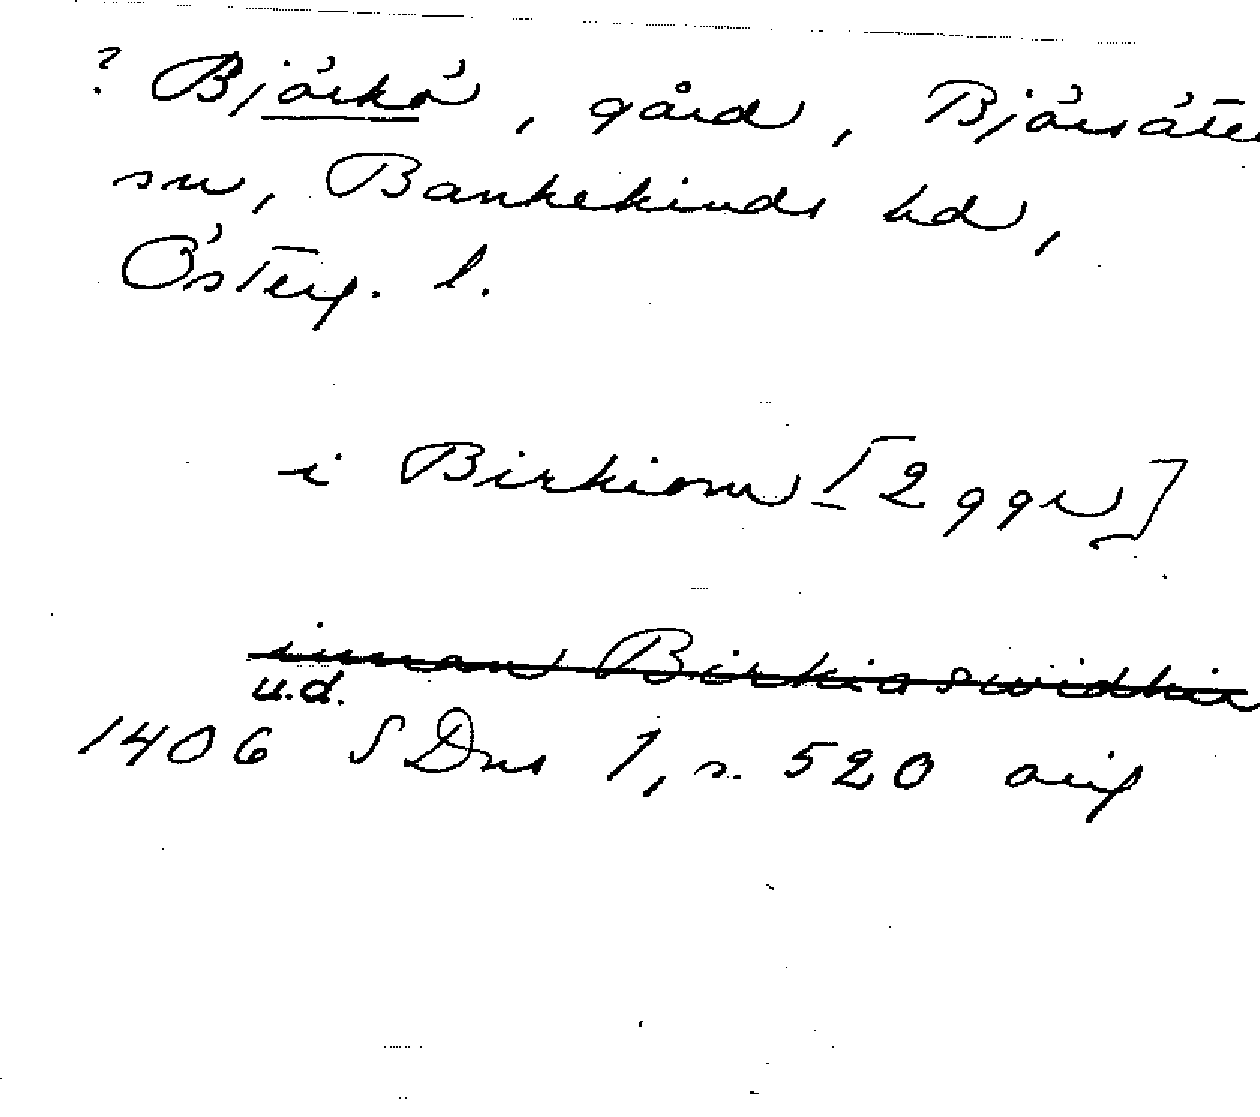 ? Björkö, gård, Björsäte
sn, Bankekinds hd,
Österg. l.
i Birkiom [2 ggr]
innan Birkiaswidhia
u.d.
1406 SDns 1, s. 520 orig